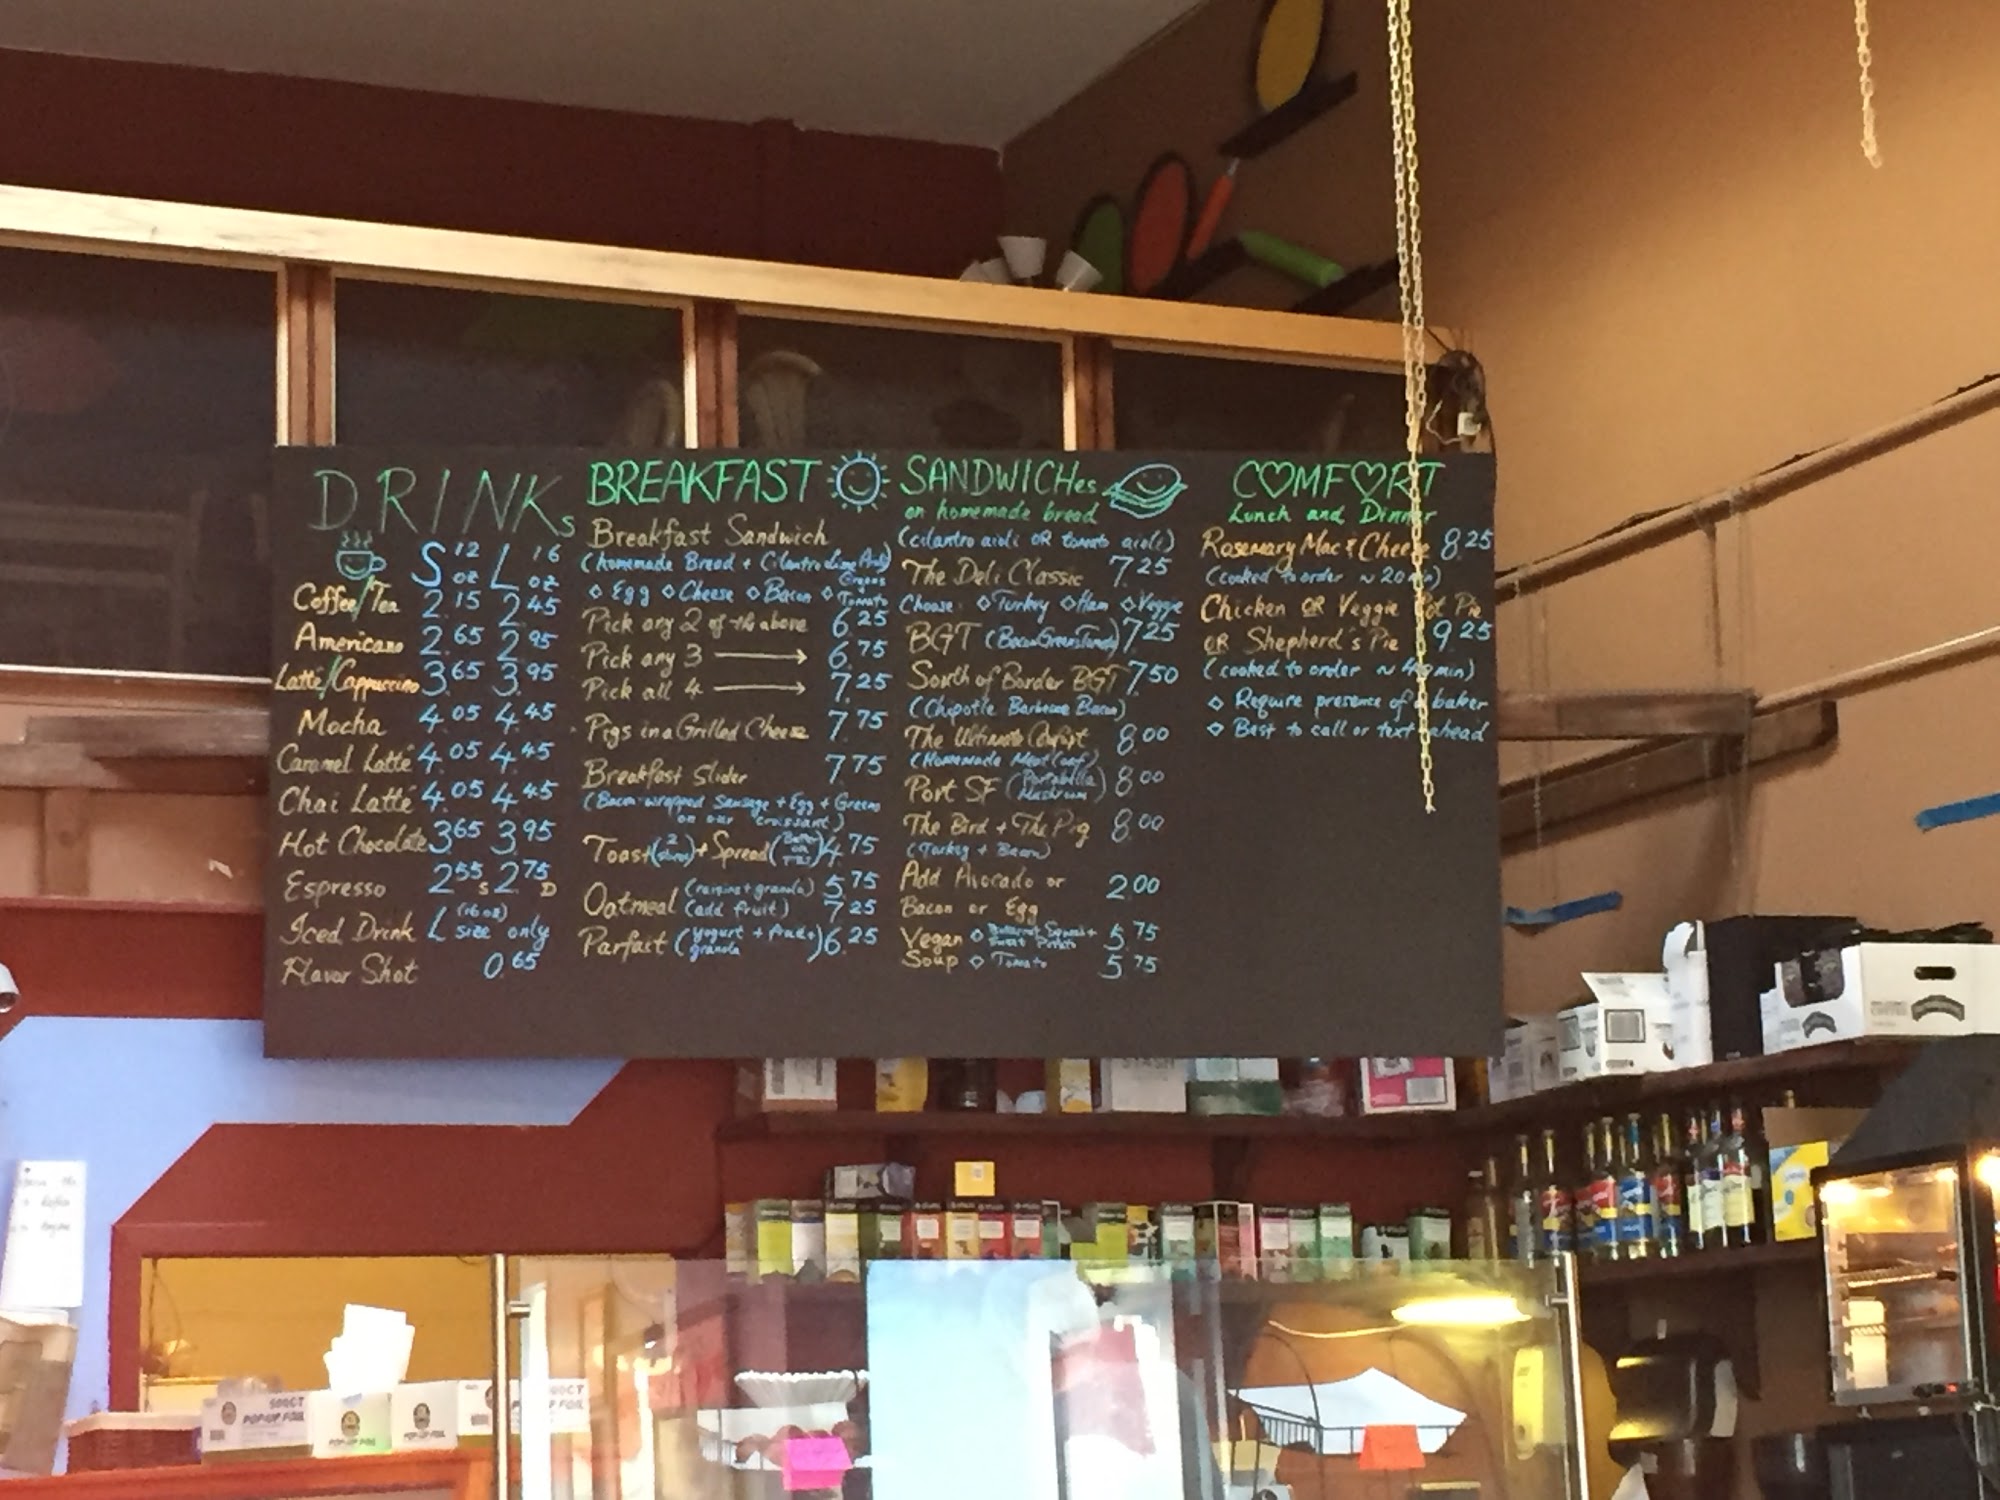 DRINKs
S 12 oz L 16 oz
Coffee/Tea 2.15 2.45
Americano 2.65 2.95
Latté/Cappuccino 3.65 3.95
Mocha 4.05 4.45
Caramel Latté 4.05 4.45
Chai Latté 4.05 4.45
Hot Chocolate 3.65 3.95
Espresso 2.55 S 2.75 D
Iced Drink L (16 oz) size only
Flavor Shot 0.65
BREAKFAST
Breakfast Sandwich
(homemade Bread + Cilantro Lime Aioli)
◇ Egg ◇ Cheese ◇ Bacon ◇ Tomato
Pick any 2 of the above 6.25
Pick any 3 → 6.75
Pick all 4 → 7.25
Pigs in a Grilled Cheese 7.75
Breakfast Slider 7.75
(Bacon-wrapped Sausage + Egg + Greens
on our croissant)
Toast (2 slices) + Spread 4.75
Oatmeal (raisins + granola) 5.75
(add fruit) 7.25
Parfait (yogurt + fruits + granola) 6.25
SANDWICHes
on homemade bread
(cilantro aioli OR tomato aioli)
The Deli Classic 7.25
Choose: ◇ Turkey ◇ Ham ◇ Veggie
BGT (Bacon Greens Tomato) 7.25
South of Border BGT 7.50
(Chipotle Barbecue Bacon)
The Ultimate Comfort 8.00
(Homemade Meatloaf)
Port SF (Portabella Mushroom) 8.00
The Bird + The Pig 8.00
(Turkey + Bacon)
Add Avocado or 2.00
Bacon or Egg
Vegan ◇ Butternut Squash + Sweet Potato 5.75
Soup ◇ Tomato 5.75
COMFORT
Lunch and Dinner
Rosemary Mac & Cheese 8.25
(cooked to order ~ 20 min)
Chicken OR Veggie Pot Pie
OR Shepherd's Pie 9.25
(cooked to order ~ 40 min)
◇ Require presence of a baker
◇ Best to call or text ahead
500CT
POP-UP FOIL
POP-UP FOIL
POP-UP FOIL
500CT
POP-UP FOIL